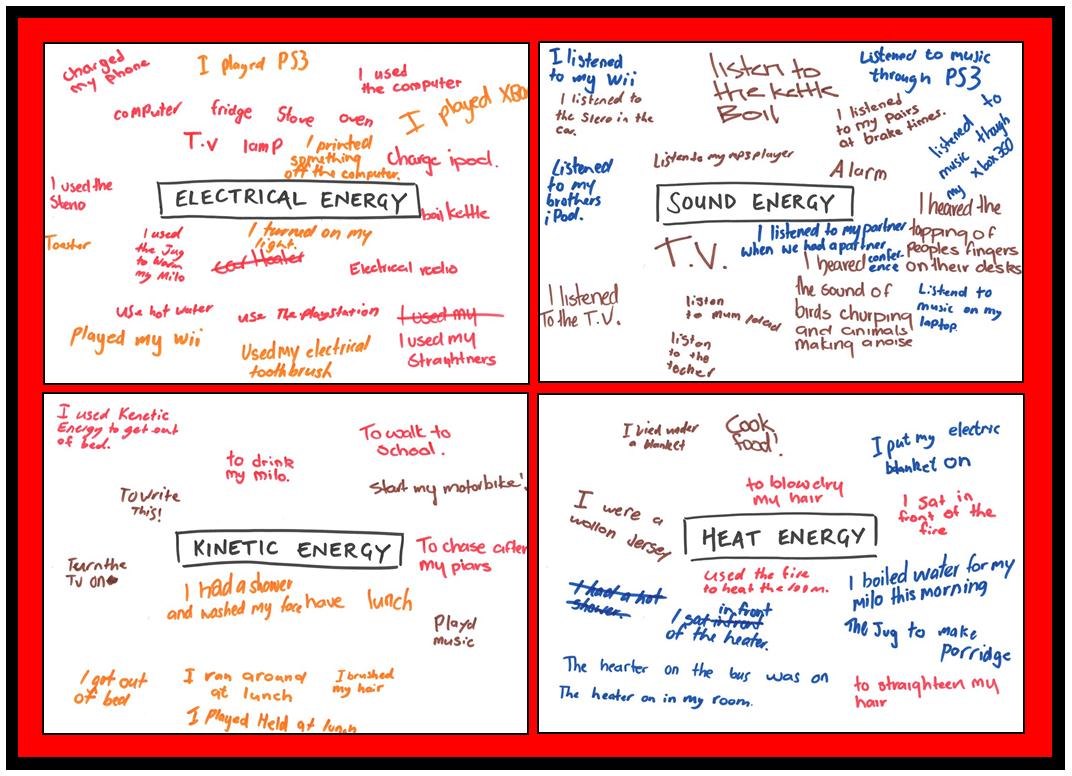 charged
my phone
I played PS3
I used
the computer
I played XBO
computer
fridge
Stove
oven
T.v
lamp
I printed
something
off the computer.
charge ipod.
I used the
Steno
ELECTRICAL ENERGY
boil kettle
Toaster
I used
the Jug
to warm
my Milo
I turned on my
light.
car Heater
Electrical radio
use hot water
use The playstation
I used my
Played my wii
Used my electrical
toothbrush
I used my
Straghtners
I listened
to my Wii
I listened to
the Stero in the
car.
listen to
the kettle
Boil
Listened to music
through PS3
I listened
to my Pairs
at brake times.
listened to
music though
my Xbox 360
Listened
to my
brothers
iPod.
Listen to my mp3 player
Alarm
SOUND ENERGY
I heared the
tapping of
peoples fingers
on their desks
T.V.
I listened to my partner
when we had a partner
confer-
ence
I heared
the sound of
birds churping
and animals
making a noise
I listened
To the T.V.
listen
to mum/dad
listen
to the
techer
Listend to
music on my
laptop.
I used Kenetic
Energy to get out
of bed.
to drink
my milo.
To walk to
school.
Start my motorbike!
To write
This!
KINETIC ENERGY
To chase after
my piars
Turn the
TV on
I had a shower
and washed my face
have lunch
Playd
music
I got out
of bed
I ran around
at lunch
I brushed
my hair
I Played Held at lunch
I lied under
a blanket
Cook
food!
I put my electric
blanket on
to blowdry
my hair
I were a
wollon Jersey
I sat in
front of the
fire
HEAT ENERGY
I had a hot
shower.
used the fire
to heat the room.
I boiled water for my
milo this morning
in front
I sat infront
of the heater.
The Jug to make
porridge
The hearter on the bus was on
The heater on in my room.
to straighteen my
hair